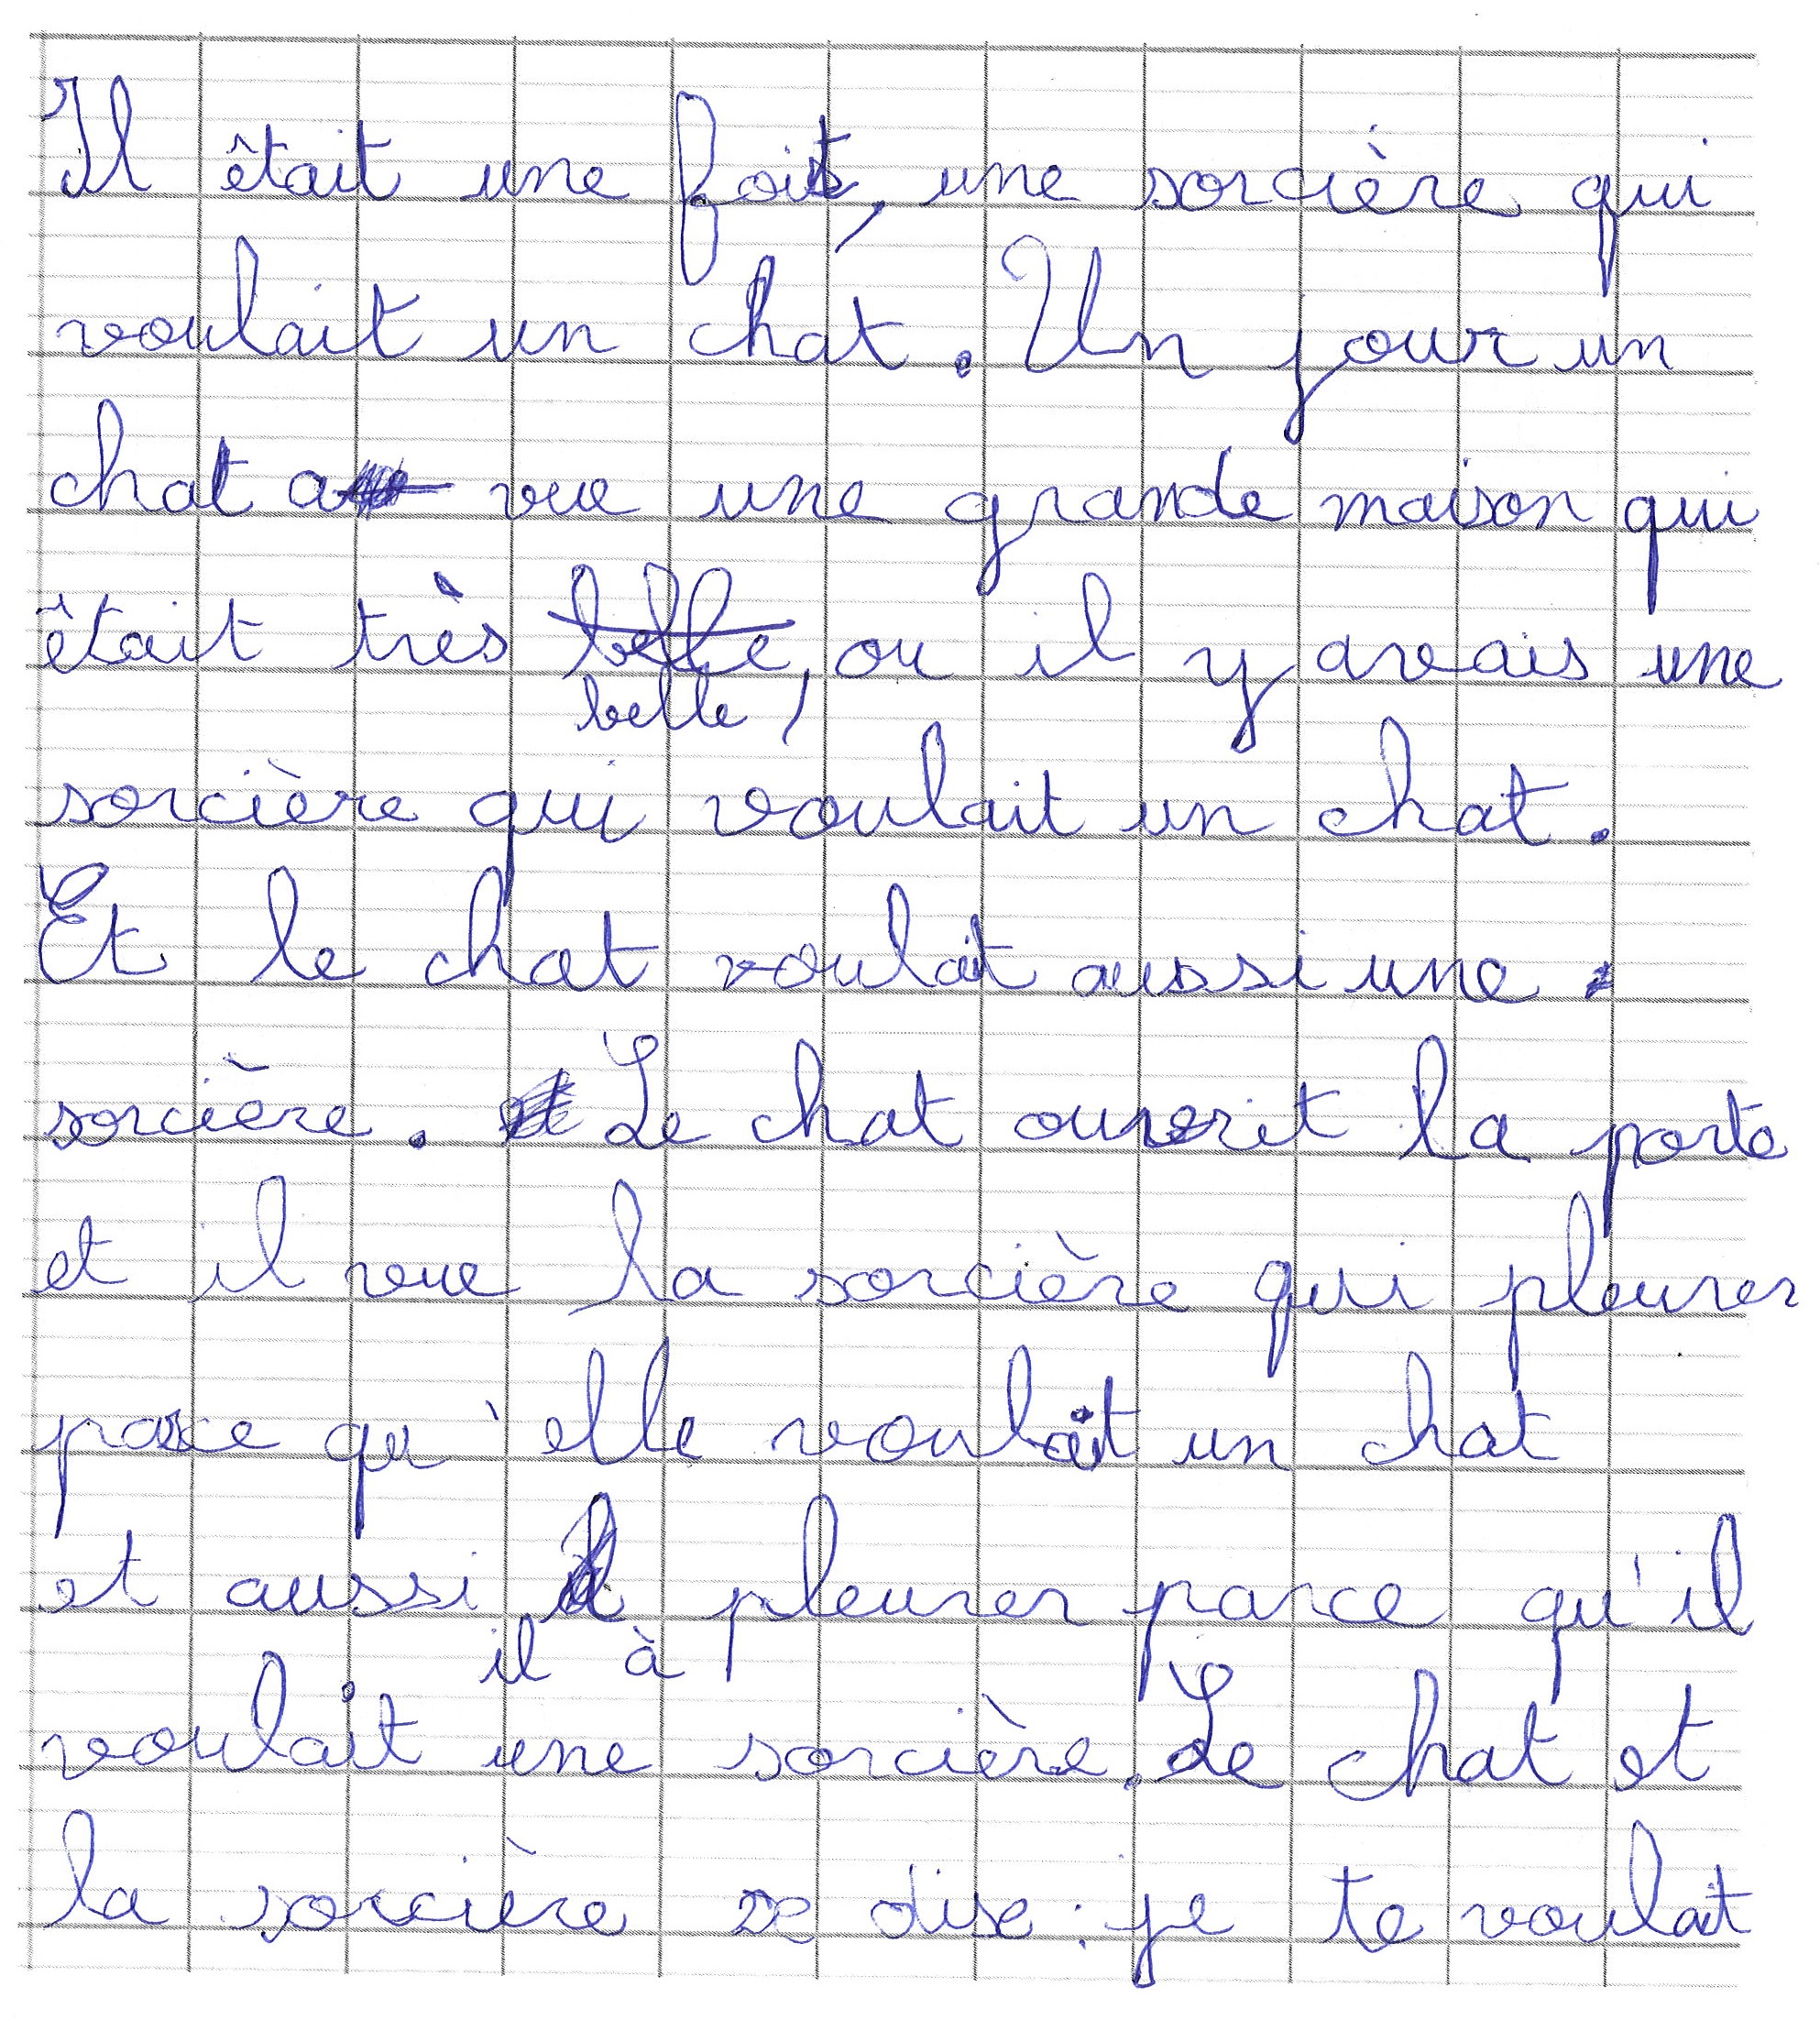 Il êtait une foit, une sorcière qui
voulait un chat. Un jour un
chat a vue une grande maison qui
êtait très belle, ou il y avais une
belle,
sorcière qui voulait un chat.
Et le chat voulait aussi une
sorcière. Le chat ouverit la porte
et il vue la sorcière qui pleurer
parce qu'elle voulait un chat
et aussi pleurer parce qu'il
il à
voulait une sorcière. Le chat et
la sorcière se dise : je te voulait